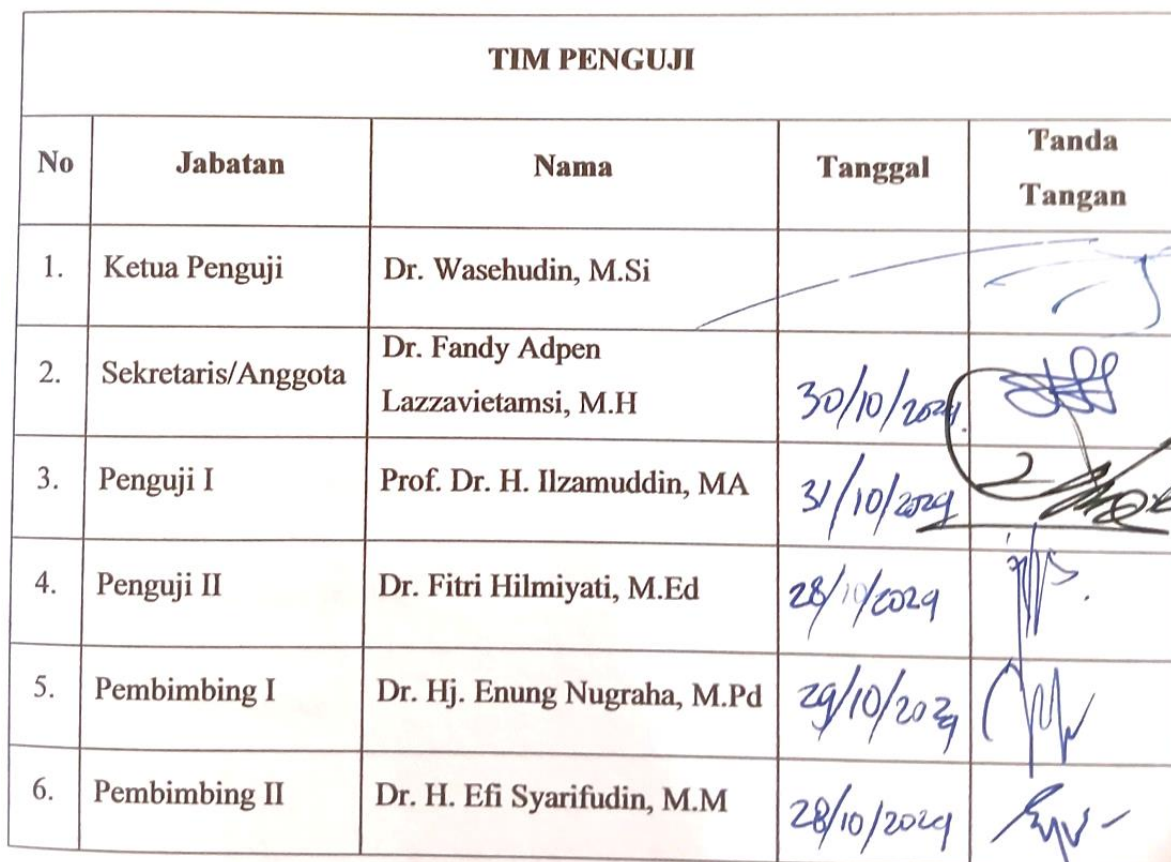 TIM PENGUJI
No Jabatan Nama Tanggal Tanda
Tangan
1. Ketua Penguji Dr. Wasehudin, M.Si
2. Sekretaris/Anggota Dr. Fandy Adpen
Lazzavietamsi, M.H 30/10/2024.
3. Penguji I Prof. Dr. H. Ilzamuddin, MA 31/10/2024
4. Penguji II Dr. Fitri Hilmiyati, M.Ed 28/10/2024
5. Pembimbing I Dr. Hj. Enung Nugraha, M.Pd 29/10/2024
6. Pembimbing II Dr. H. Efi Syarifudin, M.M 28/10/2024